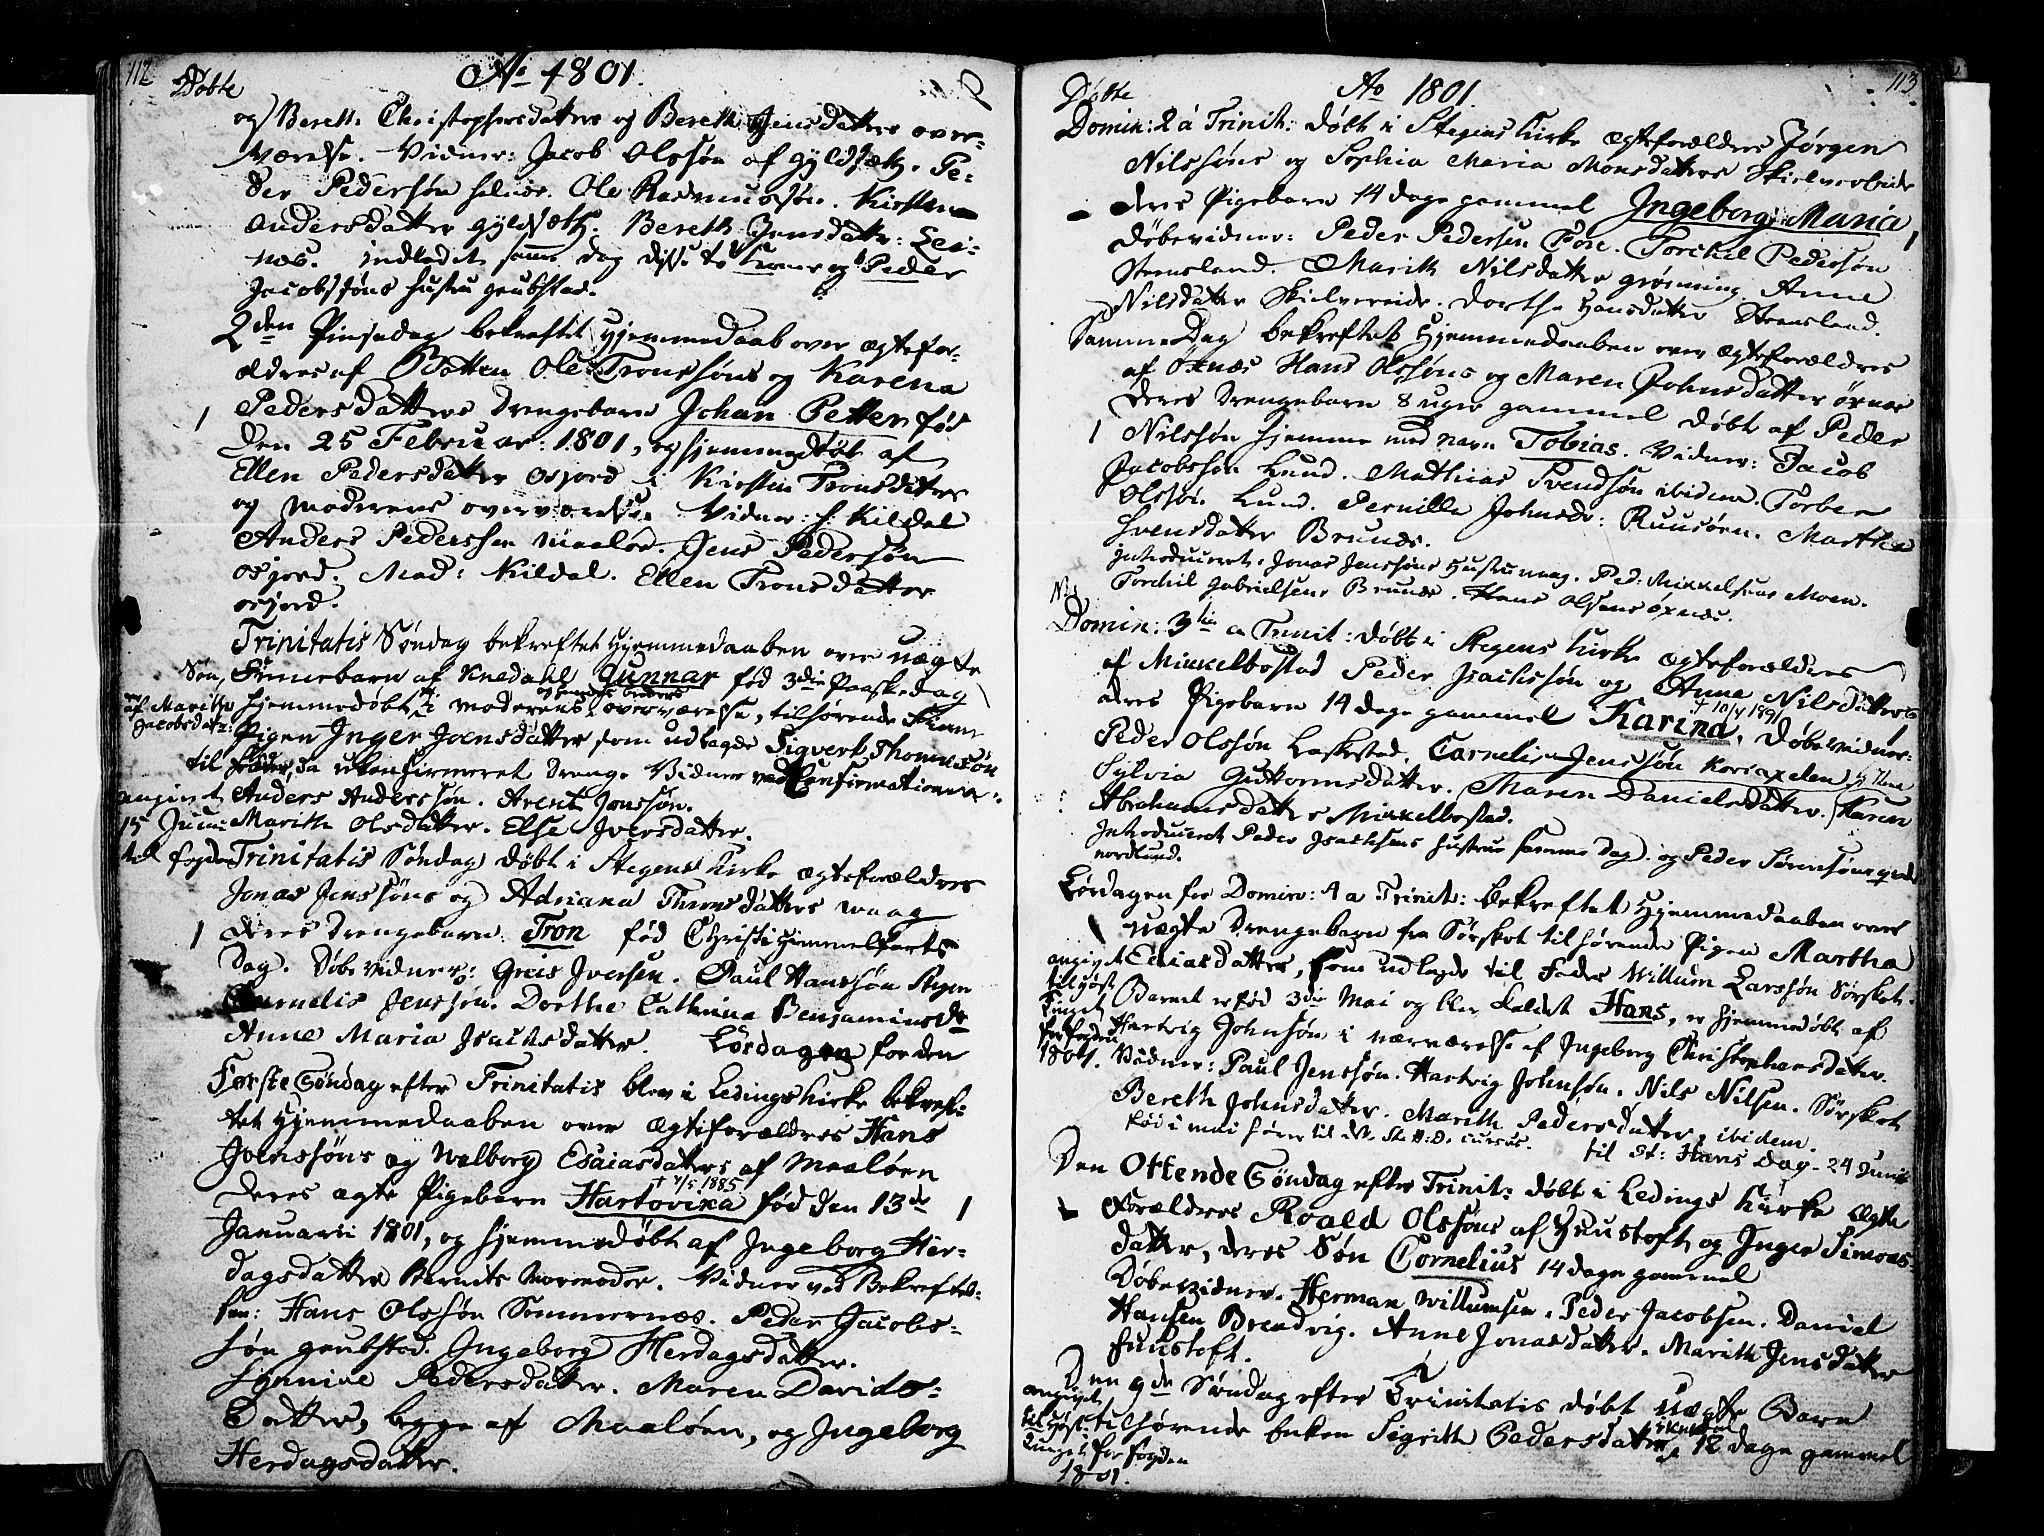 112
Døbte
Ao 1801.
og Bereth Christophersdatters og Bereth Jensdatters over-
værelse. Vidner: Jacob Olssøn af Gyldsæth. Pe-
der Pedersøn Ole Rasmussøn. Kirsten
Andersdatter Gyldsæth. Bereth Jensdatter: Lei-
næs. Indledet samme dag disse to Koner og Peder
Jacobssøns hustru Grubstad.
2den Pinsedag bekreftet Hjemmedaab over ægtefor-
ældres af Botten Ole Tronssøns og Karena
1 Pedersdatters Drengebarn Johan Petter fød
den 25 Februar: 1801, og hjemmedøbt af
Ellen Pedersdatter Osjord i Kirsten Tronsdatters
og Moderens overværelse. Vidner: H: Kildal
Anders Pederssen Maaløe. Jens Pedersøn
Osjord. Mad: Kildal. Ellen Tronsdatter
Osjord.
Trinitatis Søndag bekreftet Hjemmedaaben over uægte
Søn, Finnebarn af Knedahl Gunnar fød 3die Paaskedag
af Marithe hjemmedøbt i Moderens overværelse, tilhørende Finne
Jacobsdatr: Pigen Inger Joensdatter som udlagde Sigvert Thomessøn
til Fader, da ukonfirmeret Dreng. Vidner ved Confirmationen:
angivet Anders Anderssøn. Arent Jonssøn.
15 Juni Marith Olsdatter. Else Iversdatter.
til fogden Trinitatis Søndag døbt i Stegens Kirke ægteforældres
Jonas Jenssøns og Adriana Thronsdatters Waag
1 deres Drengebarn Tron fød Christi Himmelfarts
Dag. Døbevidner: Greis Iversen. Paul Hanssøn Stegen
Cornelis Jenssøn. Dorthe Cathrina Benjaminsdr
Anne Maria Isachsdatter. Lørdagen for den
Første Søndag efter Trinitatis blev i Ledings Kirke bekref-
tet Hjemmedaaben over ægteforældres Hans
Joenssøns og Walborg Esaiasdatters af Maaløen
† 4/5 1885
deres ægte Pigebarn Hartovika fød den 13de 1
Januarii 1801, og hjemmedøbt af Ingeborg Her-
dagsdatter Barnets Mormoder. Vidner ved Bekreftel-
sen: Hans Olssøn Sommernæs. Peder Jacobs-
søn Grubstad. Ingeborg Herdagsdatter.
Synnive Pedersdatter. Maren Davids-
Datter, begge af Maaløen, og Ingeborg
Herdagsdatter.
113
Døbte
Ao 1801
Domin: 2 a Trinit: døbt i Stegens Kirke ægteforældres Jørgen
Nilssøns og Sophia Maria Monsdatters Skielvereide
deres Pigebarn 14 dage gammel Ingeborg Maria 1
Døbevidner: Peder Pedersen Fore. Torchel Pedersøn
Steensland. Marith Nilsdatter Grønning Anne
Nilsdatter Skielvereide. Dorthe Hansdatter Steensland.
Samme Dag bekreftet Hjemmedaaben over ægteforældres
af Øxnæs Hans Olssøns og Maren Johnsdatter Øxnæs
deres Drengebarn 8 uger gammel døbt af Peder
1 Nilssøn hjemme med navn Tobias. Vidner: Jacob
Jacobssen Lund. Mathias Svendsøn ibidem. Torber
Olssøn Lund. Pernilla Johnsdr: Ruusøen. Marthe
Svensdatter Brunæs.
Introduceret: Jonas Jenssøns Hustru Waag. Ped: Mikkelsens Moen.
Torchil Gabrielsens Brunæs. Hans Olsens Øxnæs.
Domin: 3tia a Trinit: døbt i Stegens Kirke ægteforældres
af Mikkelbostad Peder Isachssøn og Anne Nilsdatters
† 10/4 1891
deres Pigebarn 14 dage gammel Karina. Døbevidner:
Peder Olssøn Laskestad. Cornelis Jenssøn
Sylvia Guttormsdatter. Maren Danielsdatter. Karen
Abrahamsdatter Mikkelbostad.
Introduceret Peder Isachsens Hustrue samme Dag. og Peder Sørenssøns
Nordlund.
Lørdagen for Domin: 4 a Trinit: bekreftet Hjemmedaaben over
1 uægte Drengebarn fra Sørskot tilhørende Pigen Martha
angivet Ediasdatter, som udlagde til Fader Willum Larssøn Sørskot.
til Høst Barnet er fød 3die Mai og blev kaldet Hans, er hjemmedøbt af
Tinget Hartvig Johnsøn i nærværelse af Ingeborg Christophersdatter.
for fogden
1801. Vidner: Paul Jenssøn. Hartvig Johnsøn. Nils Nilsen. Sørskot
Bereth Johnsdatter. Marith Pedersdatter, ibidem.
fød i mai hører til
til St: Hans dag. 24 Junii
Den Ottende Søndag efter Trinit: døbt i Ledings Kirke Ægte
Forældres Roald Olssøns af Fuustoft og Inger Simons-
datter, deres Søn Cornelius 14 dage gammel
Døbevidner. Herman Willumsen. Peder Jacobsen. Daniel
Hansen Brendvig. Anne Jonasdatter. Marith Jensdatter
Fuustoft.
Den 9de Søndag efter Trinitatis døbt uægte Barn
angivet
til Høst- tilhørende enken Sigrith Pedersdatter 12 dage gammel
Tinget for fogden
1801.